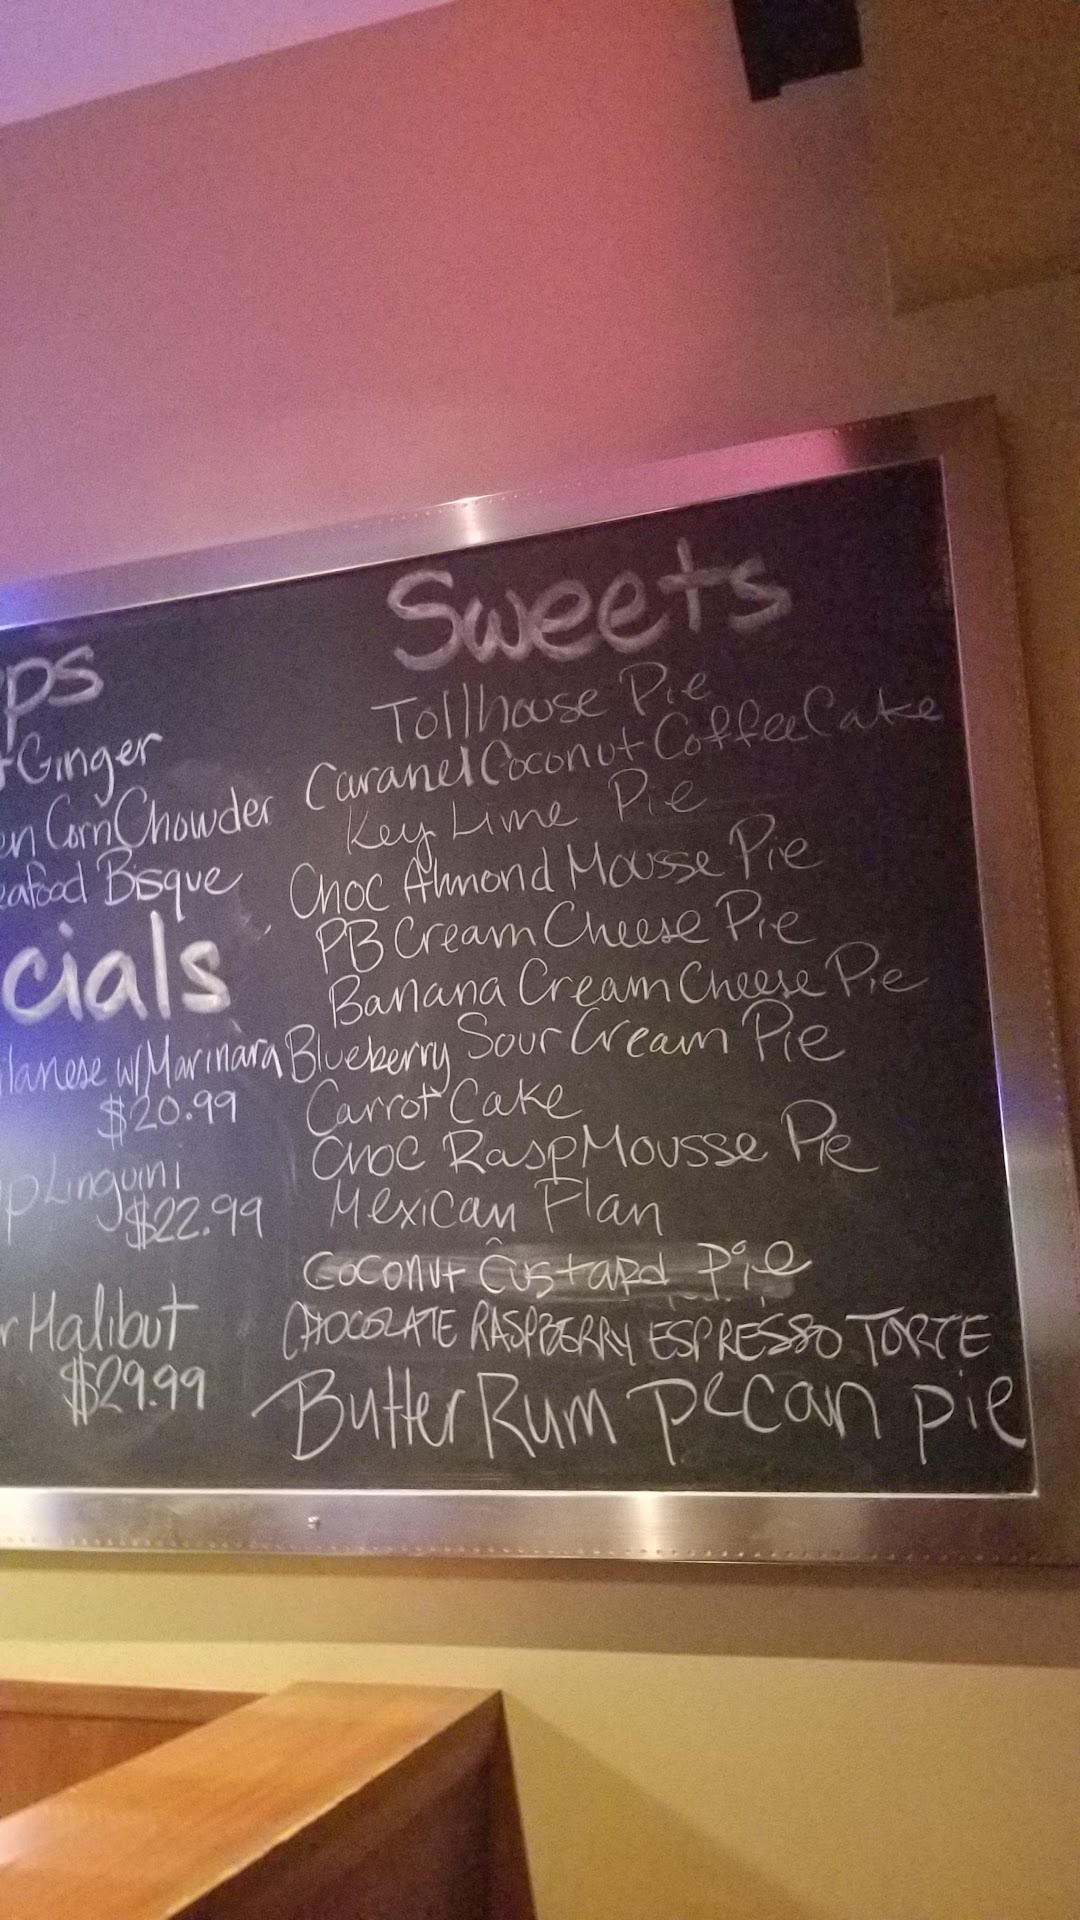 ps
Ginger
en Corn Chowder
eafood Bisque
cials
lanese w/ Marinara
$20.99
p Linguini
$22.99
r Halibut
$29.99
Sweets
Tollhouse Pie
Caramel Coconut Coffee Cake
Key Lime Pie
Choc Almond Mousse Pie
PB Cream Cheese Pie
Banana Cream Cheese Pie
Blueberry Sour Cream Pie
Carrot Cake
Choc Rasp Mousse Pie
Mexican Flan
Coconut Custard Pie
CHOCOLATE RASPBERRY ESPRESSO TORTE
Butter Rum Pecan pie